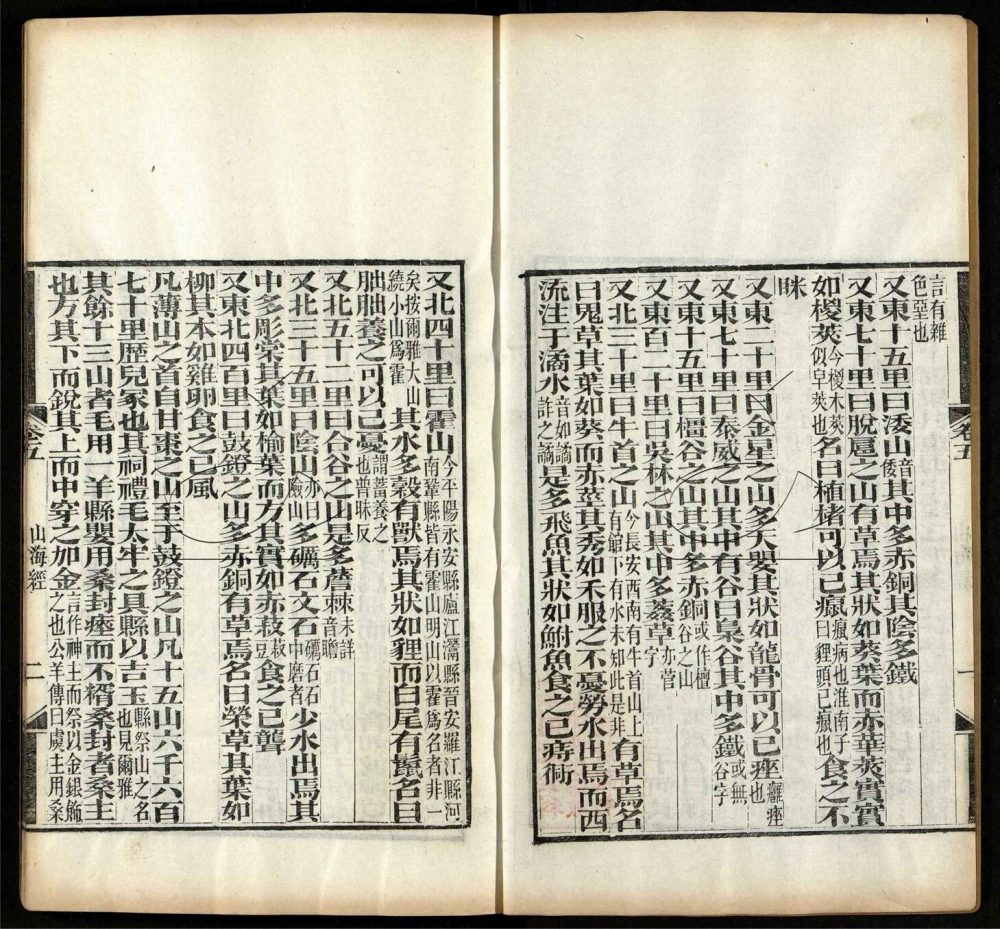 言有雜
色堊也
又東十五里曰涹山音倭其中多赤銅其陰多鐵
又東七十里曰脫扈之山有草焉其狀如葵葉而赤華莢實實
如椶莢今椶木莢似皁莢也名曰植楮可以已癙癙病也淮南子曰貍頭已癙也食之不
眯
又東二十里曰金星之山多天嬰其狀如龍骨可以已痤癰痤也
又東七十里曰泰威之山其中有谷曰梟谷其中多鐵或無谷字
又東十五里曰橿谷之山其中多赤銅或作檀谷之山
又東百二十里曰吳林之山其中多葌草亦菅字
又北三十里曰牛首之山今長安西南有牛首山上有館下有水未知此是非有草焉名
曰鬼草其葉如葵而赤莖其秀如禾服之不憂勞水出焉而西
流注于潏水音如譎詐之譎是多飛魚其狀如鮒魚食之已痔衕
卷五
一
又北四十里曰霍山今平陽永安縣廬江灊縣晉安羅江縣河南鞏縣皆有霍山明山以霍為名者非一
矣按爾雅大山繞小山爲霍其木多榖有獸焉其狀如貍而白尾有鬣名曰
朏朏養之可以已憂謂蓄養之也普昧反
又北五十二里曰合谷之山是多薝棘未詳音瞻
又北三十五里曰陰山亦曰險山多礪石文石礪石石中磨者少水出焉其
中多彫棠其葉如楡葉而方其實如赤菽菽豆食之已聾
又東北四百里曰鼓鐙之山多赤銅有草焉名曰榮草其葉如
柳其本如雞卵食之已風
凡薄山之首自甘棗之山至于鼓鐙之山凡十五山六千六百
七十里歷兒冢也其祠禮毛太牢之具縣以吉玉縣祭山之名也見爾雅
其餘十三山者毛用一羊縣嬰用桑封瘞而不糈桑封者桑主
也方其下而銳其上而中穿之加金言作神主而祭以金銀飾之也公羊傳曰虞主用桑
卷五
山海經
二